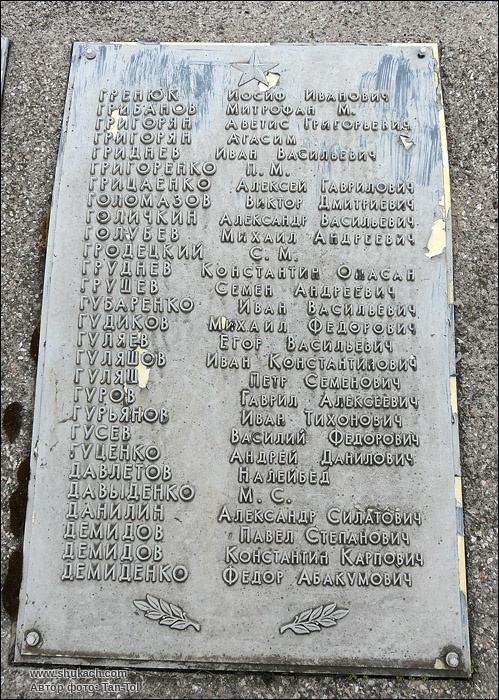 ГРЕНЮК ИОСИФ ИВАНОВИЧ
ГРИБАНОВ МИТРОФАН М.
ГРИГОРЯН АВЕТИС ГРИГОРЬЕВИЧ
ГРИГОРЯН АГАСИМ
ГРИДНЕВ ИВАН ВАСИЛЬЕВИЧ
ГРИГОРЕНКО П. М.
ГРИЦАЕНКО АЛЕКСЕЙ ГАВРИЛОВИЧ
ГОЛОМАЗОВ ВИКТОР ДМИТРИЕВИЧ
ГОЛИЧКИН АЛЕКСАНДР ВАСИЛЬЕВИЧ
ГОЛУБЕВ МИХАИЛ АНДРЕЕВИЧ
ГРОДЕЦКИЙ С. М.
ГРУДНЕВ КОНСТАНТИН ОПАСАН
ГРУШЕВ СЕМЕН АНДРЕЕВИЧ
ГУБАРЕНКО ИВАН ВАСИЛЬЕВИЧ
ГУДИКОВ МИХАИЛ ФЕДОРОВИЧ
ГУЛЯЕВ ЕГОР ВАСИЛЬЕВИЧ
ГУЛЯШОВ ИВАН КОНСТАНТИНОВИЧ
ГУЛЯШ ПЕТР СЕМЕНОВИЧ
ГУРОВ ГАВРИЛ АЛЕКСЕЕВИЧ
ГУРЬЯНОВ ИВАН ТИХОНОВИЧ
ГУСЕВ ВАСИЛИЙ ФЕДОРОВИЧ
ГУЦЕНКО АНДРЕЙ ДАНИЛОВИЧ
ДАВЛЕТОВ НАЛЕЙБЕД
ДАВЫДЕНКО М. С.
ДАНИЛИН АЛЕКСАНДР СИЛАТОВИЧ
ДЕМИДОВ ПАВЕЛ СТЕПАНОВИЧ
ДЕМИДОВ КОНСТАНТИН КАРПОВИЧ
ДЕМИДЕНКО ФЕДОР АБАКУМОВИЧ
www.shukach.com
Автор фото: Tan-Tol